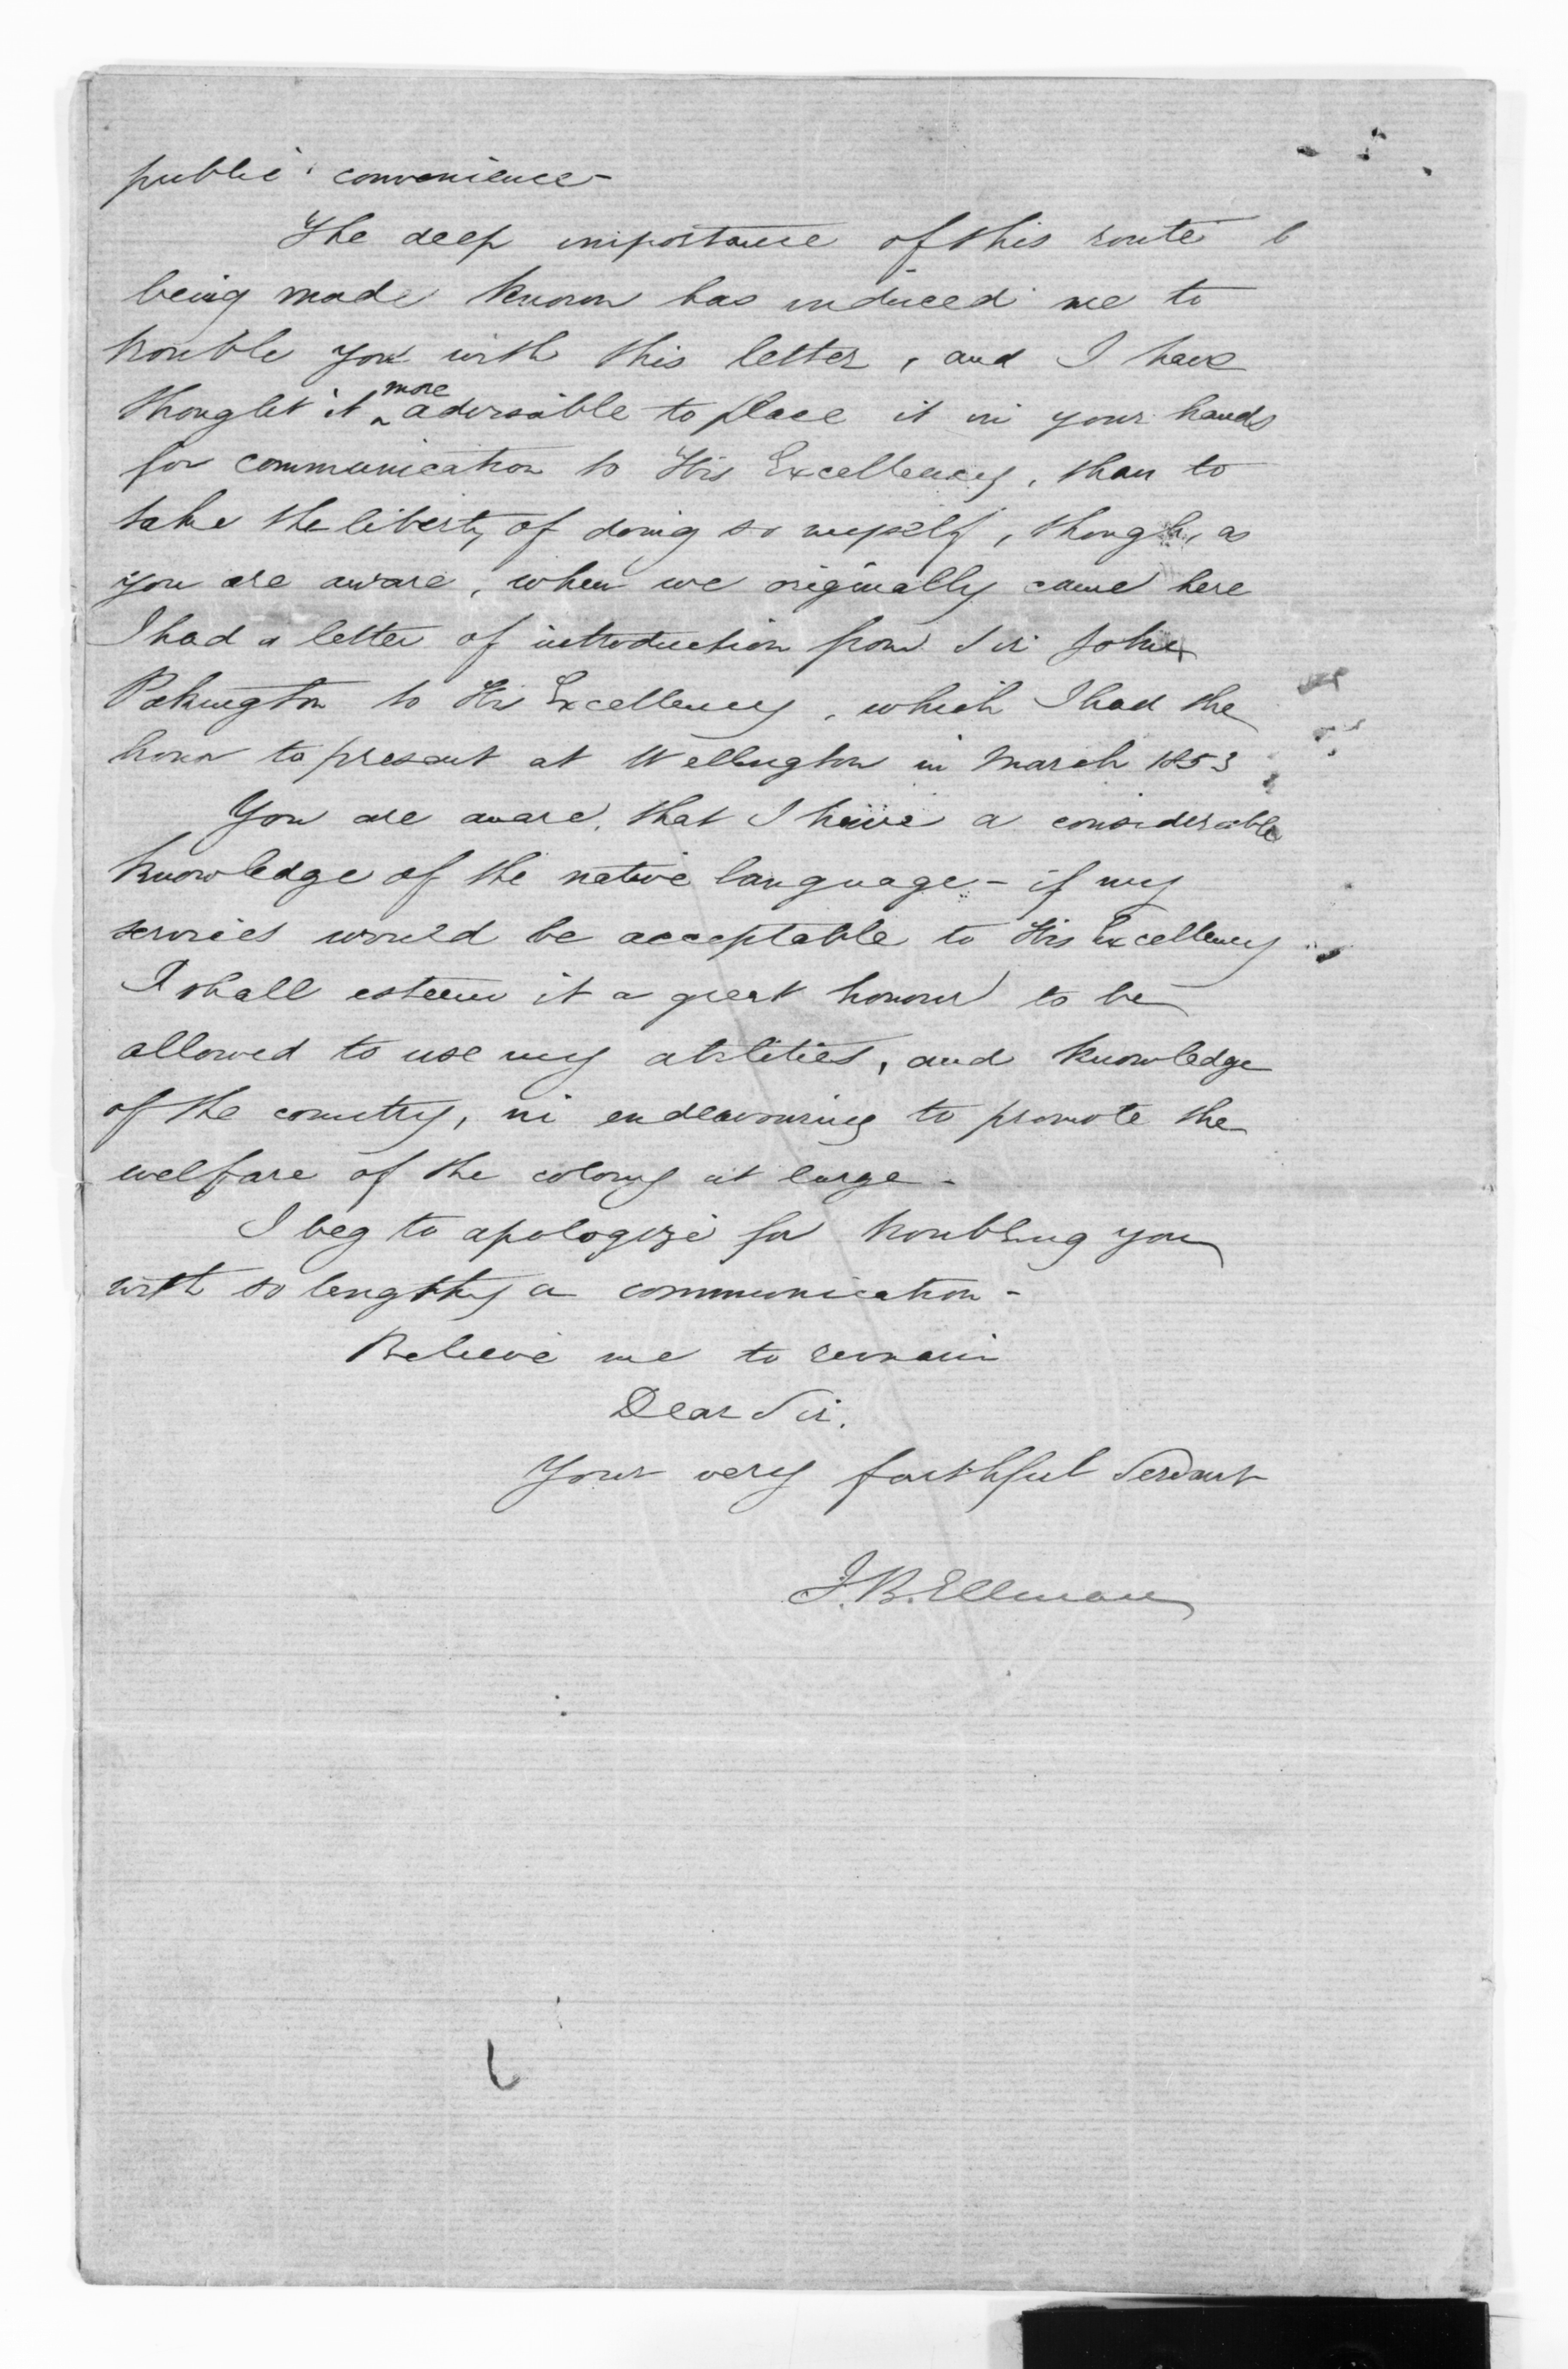 public convenience -
The deep importance of this route b
being made known has induced me to
trouble you with this letter, and I have
thought it more adversable to place it in your hands
for communication to His Excellency, than to
take the liberty of doing so myself, though, as
you are aware, when we originally came here
I had a letter of introduction from Sir John
Pakington to His Excellency, which I had the
honor to present at Wellington in March 1853
You are aware, that I have a considerable
knowledge of the native language - if my
services would be acceptable to His Excellency
I shall esteem it a great honour to be
allowed to use my abilities, and knowledge
of the country, in endeavouring to promote the
welfare of the colony at large -
I beg to apologize for troubling you
with so lengthy a communication -
Believe me to remain
Dear Sir.
Your very faithful Servant
J.B. Ellman